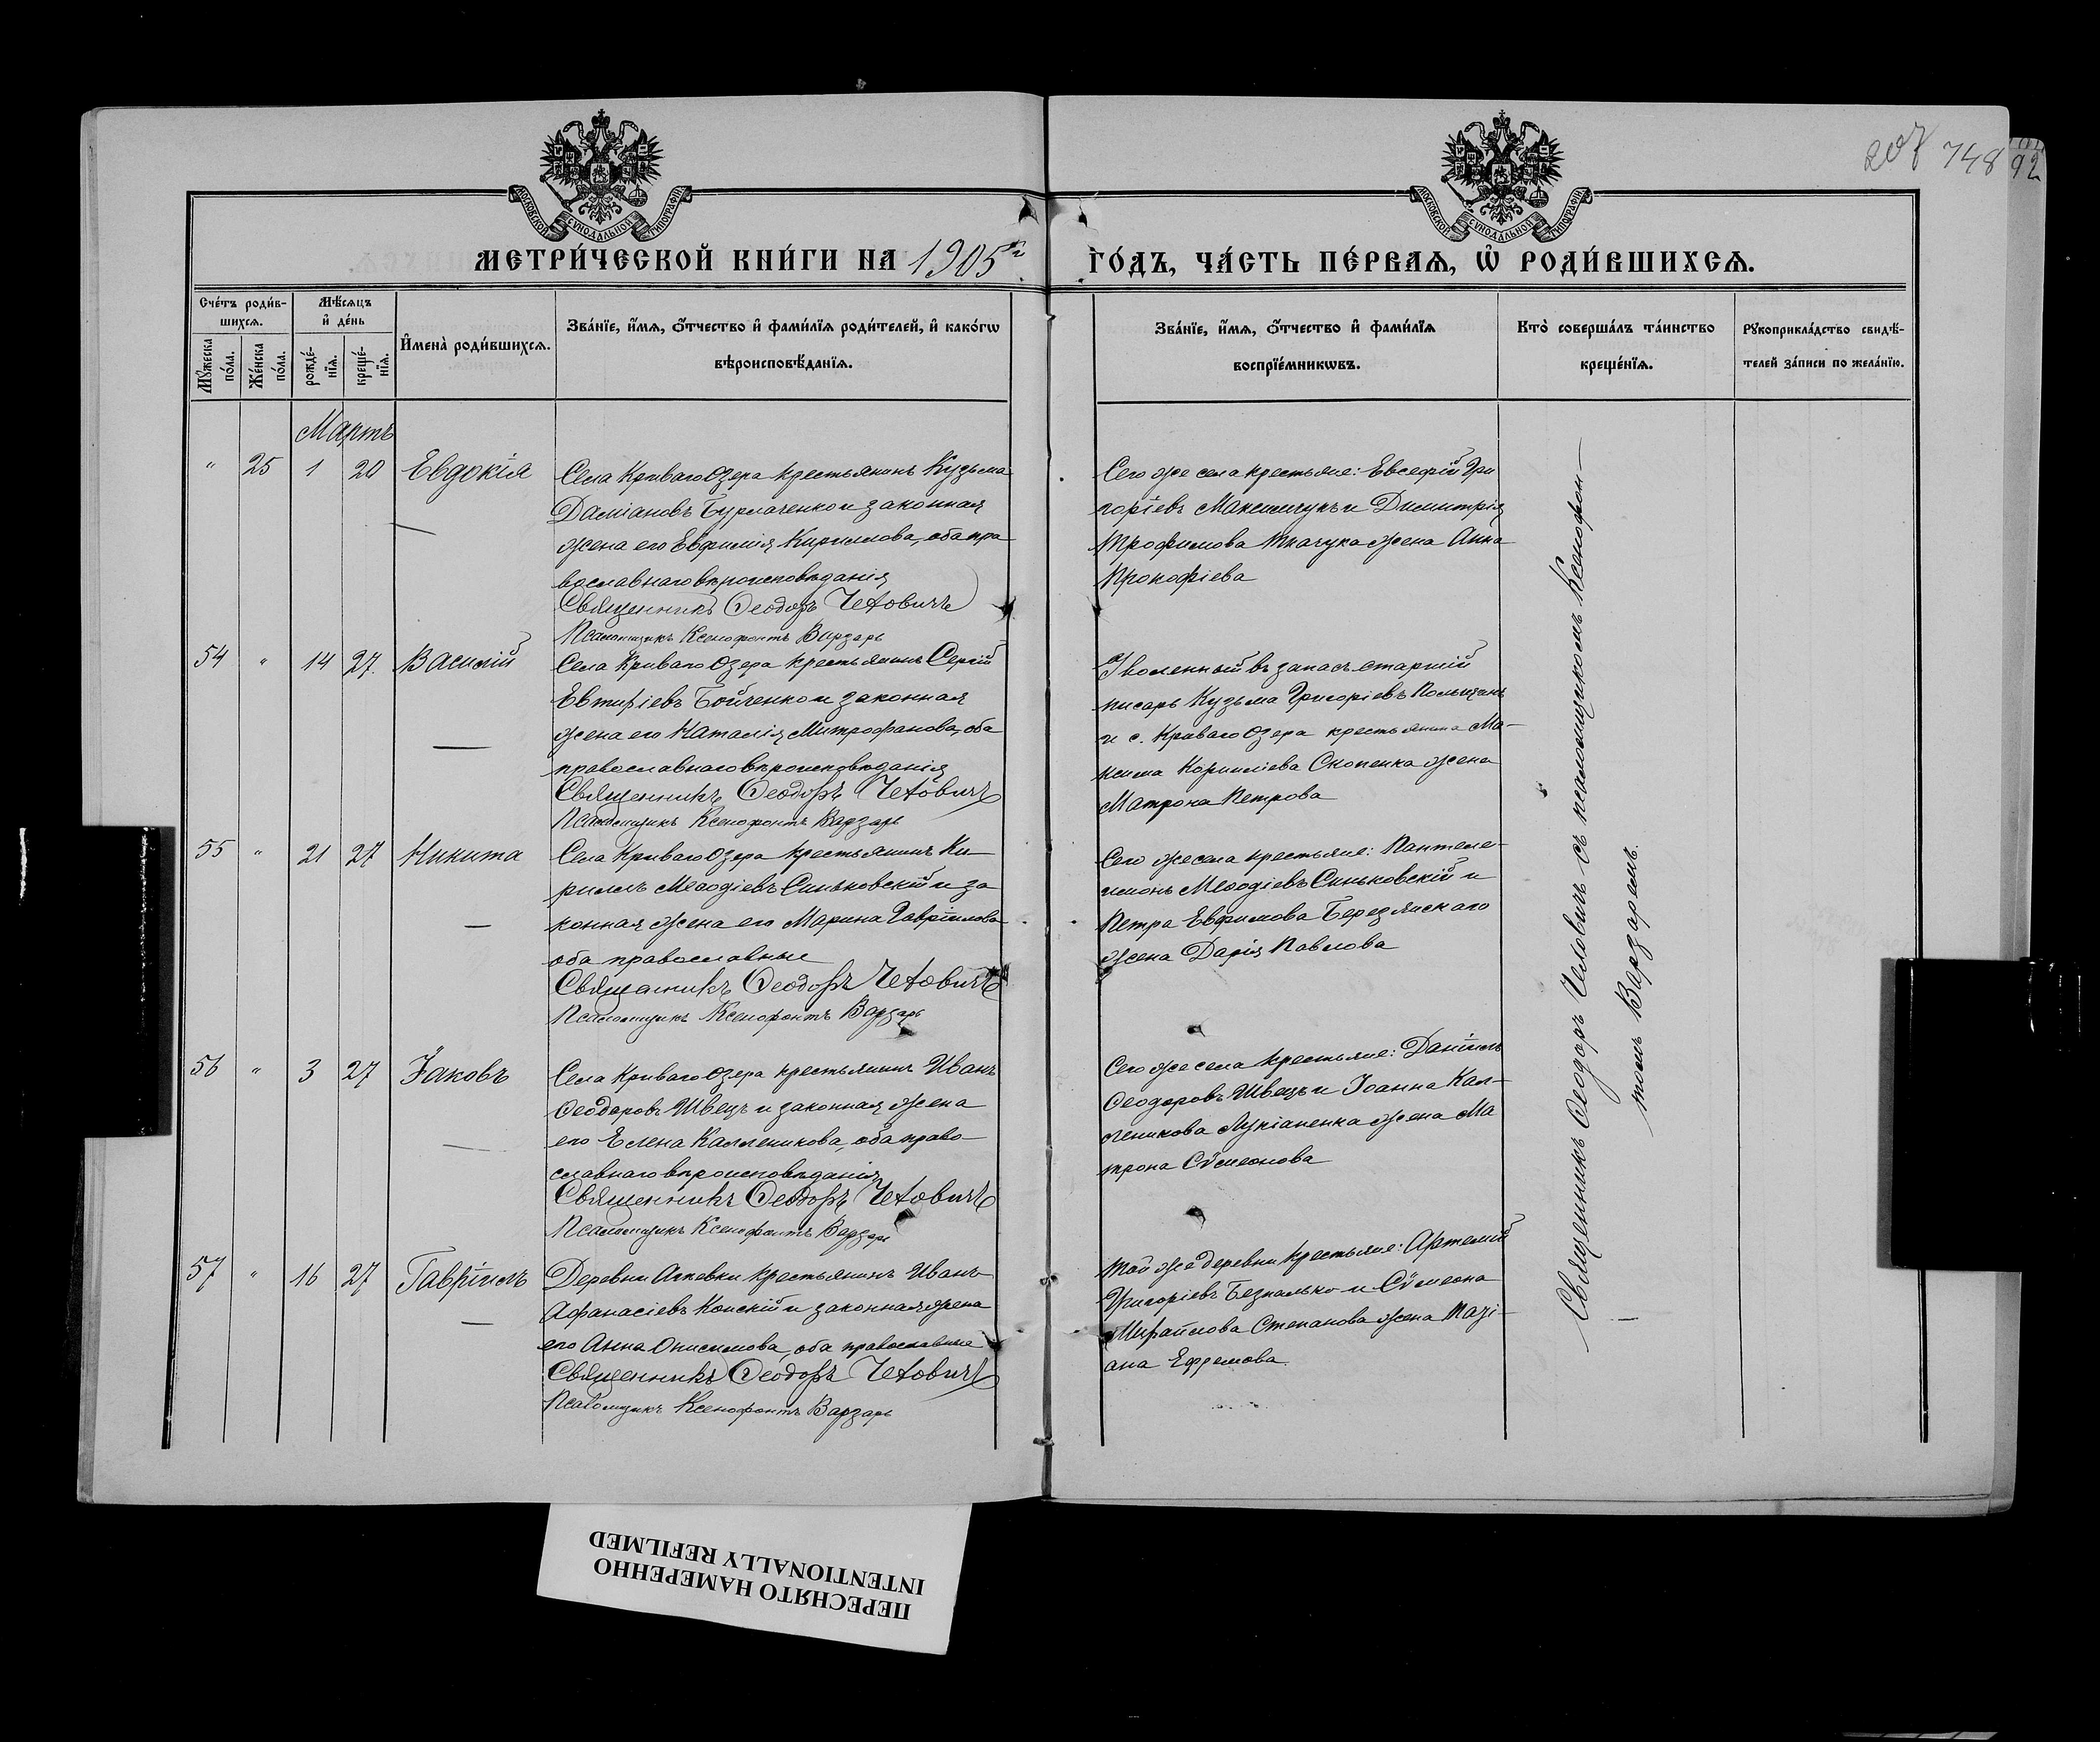 207 748 92
МОСКОВСКОЙ СѴНОДАЛЬНОЙ ТИПОГРАФІИ
МОСКОВСКОЙ СѴНОДАЛЬНОЙ ТИПОГРАФІИ
МЕТРИ́ЧЕСКОЙ КНИ́ГИ НА 1905й
ГО́ДЪ, ЧА́СТЬ ПЕ́РВАѦ, Ѡ РОДИ́ВШИХСѦ.
Сче́тъ роди́в-
шихсѧ.
Мꙋ́жеска по́ла.
Же́нска по́ла.
Мѣ́сѧцъ
и҆ де́нь
рожде́-
нїѧ.
креще́-
нїѧ.
И҆мена̀ роди́вшихсѧ.
Зва́нїе, и҆́мѧ, ѻ҆́тчество и҆ фами́лїѧ роди́телей, и҆ како́гѡ
вѣроисповѣ́данїѧ.
Зва́нїе, и҆́мѧ, ѻ҆́тчество и҆ фами́лїѧ
воспрїе́мникѡвъ.
Кто̀ соверша́лъ та́инство
креще́нїѧ.
Рꙋкоприкла́дство свидѣ́-
телей за́писи по жела́нїю.
Мартъ
" 25 1 20 Евдокія
Села Криваго Озера крестьянинъ Кузьма
Даміановъ Бурлаченко и законная
жена его Евфимія Кириллова, оба пра
вославнаго вѣроисповѣданія
Священникъ Ѳеодоръ Человичъ
Псаломщикъ Ксенофонтъ Варзарь
Сего же села крестьяне: Евсефій Гри
горіевъ Максимчукъ и Димитрія
Трофимова Ткачука жена Анна
Прокофіева
54 " 14 27. Василій
Села Криваго Озера крестьянинъ Сергій
Евтихіевъ Бойченко и законная
жена его Наталія Митрофанова, оба
православнаго вѣроисповѣданія
Священникъ Ѳеодоръ Человичъ
Псаломщикъ Ксенофонтъ Варзарь
Уволенный въ запасъ старшій
писарь Кузьма Григоріевъ
и с. Криваго Озера крестьянина Ма-
ксима Корниліева Скопенка жена
Матрона Петрова
55 " 21 27 Никита
Села Криваго Озера крестьянинъ Ки-
риллъ Меѳодіевъ Синьковскій и за
конная жена его Марина Гавріилова
оба православные
Священникъ Ѳеодоръ Человичъ
Псаломщикъ Ксенофонтъ Варзарь
Сего же села крестьяне: Пантеле-
имонъ Меѳодіевъ Синьковскій и
Петра Евфимова Березянскаго
жена Дарія Павлова
56 " 3 27 Іаковъ
Села Криваго Озера крестьянинъ Иванъ
Ѳеодоровъ Швецъ и законная жена
его Елена Каллениковa, оба право-
славнаго вѣроисповѣданія
Священникъ Ѳеодоръ Человичъ
Псаломщикъ Ксенофонтъ Варзарь
Сего же села крестьяне: Даніилъ
Ѳеодоровъ Швецъ и Іоанна Кал-
леникова Лукіаненка жена Ма
трона Сѵмеонова
57 " 16 27 Гавріилъ
Деревни крестьянинъ Иванъ
Афанасіевъ Конскій и законная жена
его Анна Онисимова, оба православные
Священникъ Ѳеодоръ Человичъ
Псаломщикъ Ксенофонтъ Варзарь
Той же деревни крестьяне: Артемій
Григоріевъ Безпалько и Сѵмеона
Михайлова Степанова жена Таті-
ана Ефремова.
Священникъ Ѳеодоръ Человичъ съ псаломщикомъ Ксенофон-
томъ Варзаремъ.
ПЕРЕСНЯТО НАМЕРЕННО
INTENTIONALLY REFILMED